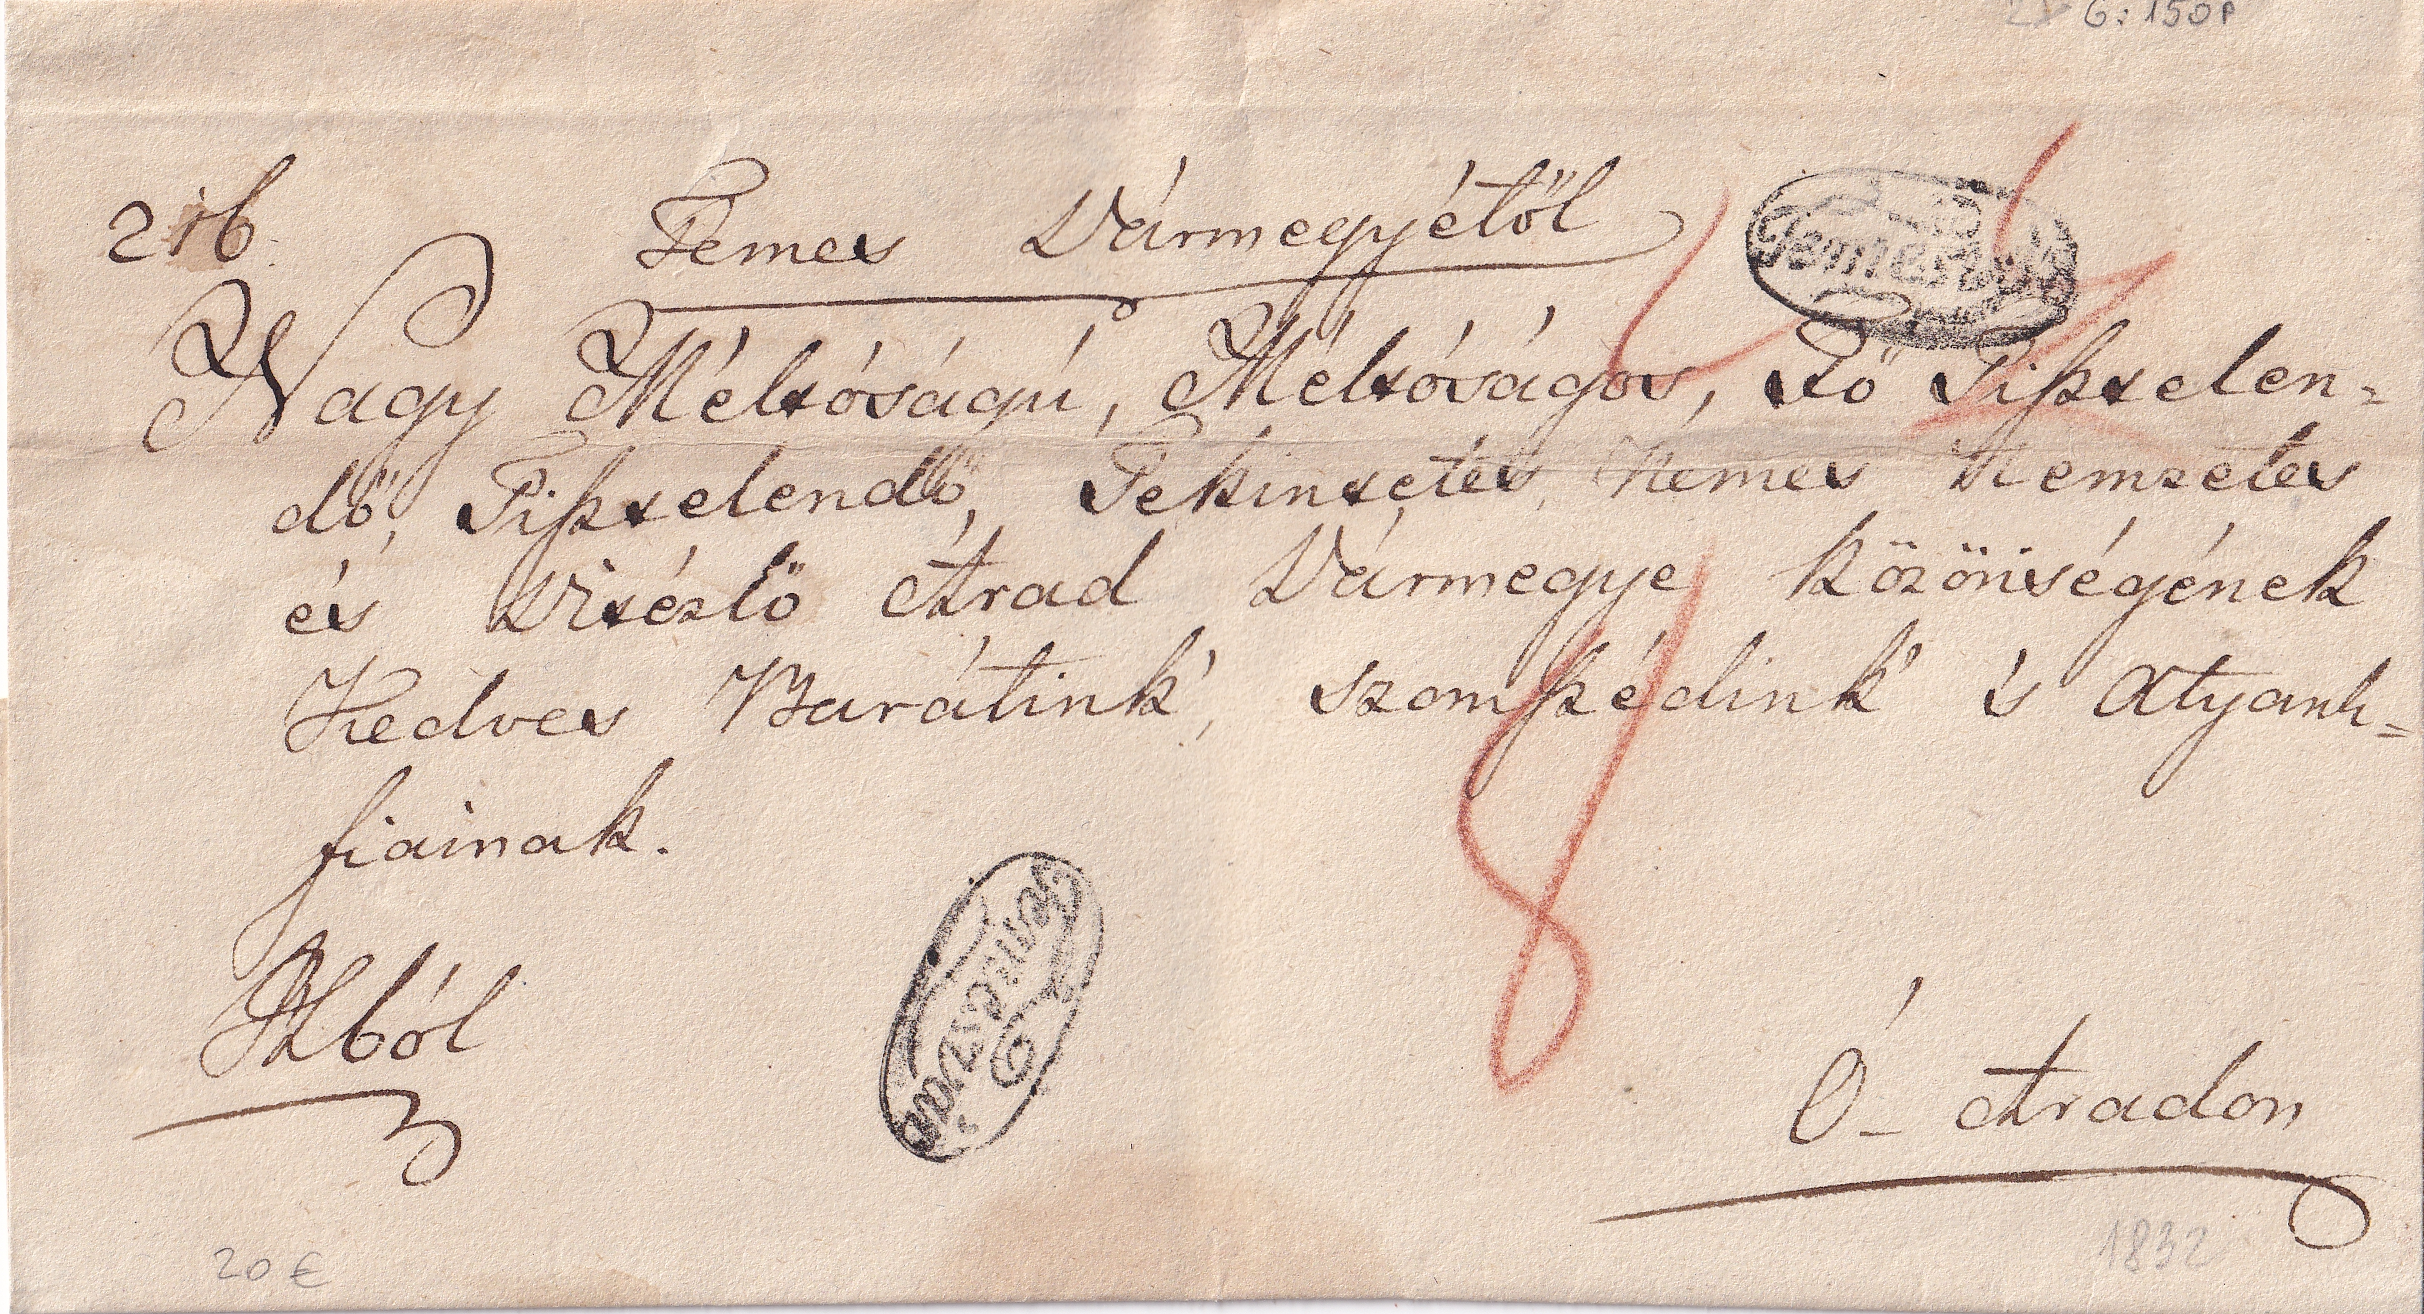 G: 150P
216.
Temes Vármegyétől
Temesvar
Nagy Méltóságú, Méltóságos, Fő Tiſztelen=
dő, Tiſztelendő, Tekintetes, Nemes Nemzetes
és Vitézlő Arad Vármegye Közönségének
Kedves Barátink', szomſzédink' 's Atyank-
fiainak.
Temesvar
Ó-Aradon
20 €
1832